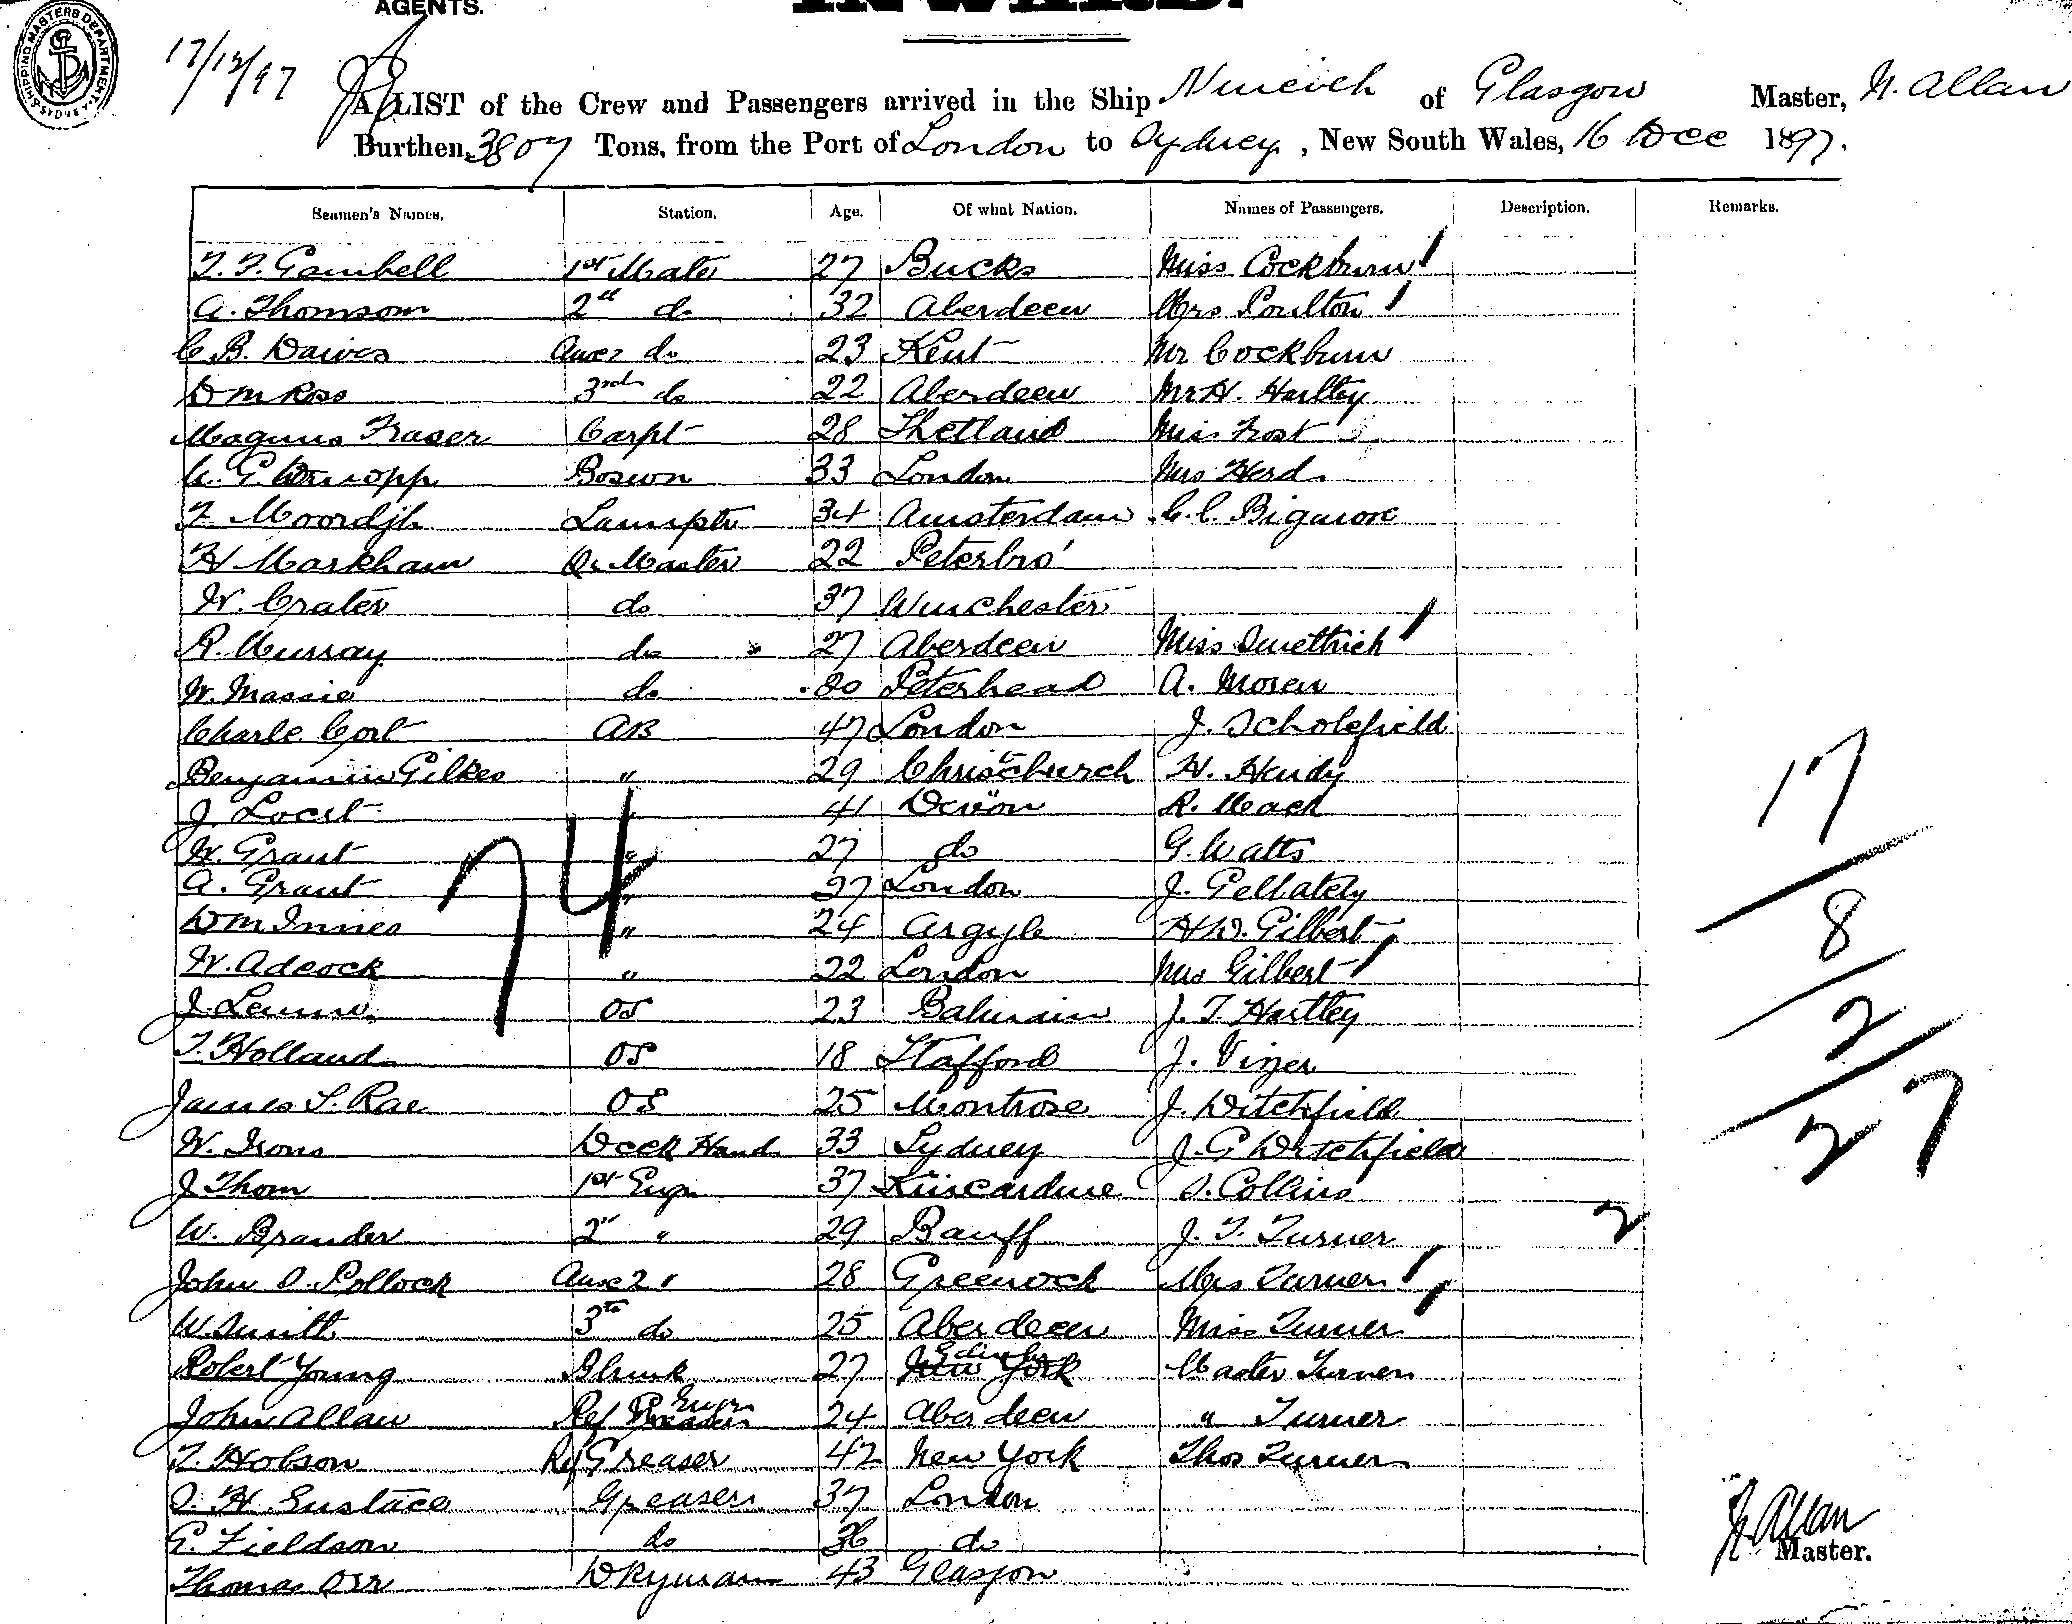 AGENTS.
INWARD.
SHIPPING MASTERS DEPARTMENT SYDNEY
17/12/97
A LIST of the Crew and Passengers arrived in the Ship Nineveh of Glasgow Master, N. Allan
Burthen, 3807 Tons, from the Port of London to Sydney, New South Wales, 16 Dec 1897.
Seamen's Names. Station. Age. Of what Nation. Names of Passengers. Description. Remarks.
T. F. Gambell 1st Mate 27 Bucks Miss Cockburn
A. Thomson 2nd do 32 Aberdeen Mrs Poulton
C. B. Dawes do 23 Kent Mr Cockburn
D M Ross 3rd do 22 Aberdeen Mr H. Hartley
Magnus Fraser Carpt 28 Shetland Miss Frost
G. Boswn 33 London Mrs Herd
F. Moordijk Lamptr 34 Amsterdam C. C. Bigmore
H Markham Qr Master 22 Peterbro'
W. Crater do 37 Winchester
R. Murray do 27 Aberdeen Miss Smethick
W. Massie do Peterhead A. Mosen
Charle Cort AB 47 London J. Scholefield
Benjamin Gilkes " 29 Christchurch H. Hendy
J. " 41 Devon R. Mack
W. Grant " 27 do G. Watts
A. Grant " 27 London J. Gellately
D M Innes " 24 Argyle H W. Gilbert
W. Adcock " 22 London Mrs Gilbert
J. OS 23 J. T. Hartley
T. Holland OS 18 Stafford J. Vizer
James S. Rae OS 25 Montrose J. Ditchfield
W. Irons Deck Hand 33 Sydney J. G Ditchfield
J Thom 1st Engr 37 Kincardine S. Collins
W. Brander 2nd " 29 Banff J. T. Turner
John S. Pollock 2 " 28 Greenock Mrs Turner
W. Smith 3rd do 25 Aberdeen Miss Turner
Robert Young 27 New York Master Turner
John Allan Ref Engr 24 Aberdeen " Turner
T. Hobson Rf Greaser 42 New York Thos Turner
S. H. Eustace Greaser 37 London
G. Fieldson do 36 do
Thomas Orr Dkyman 43 Glasgow
74
17
8
2
27
2
N. Allan
Master.